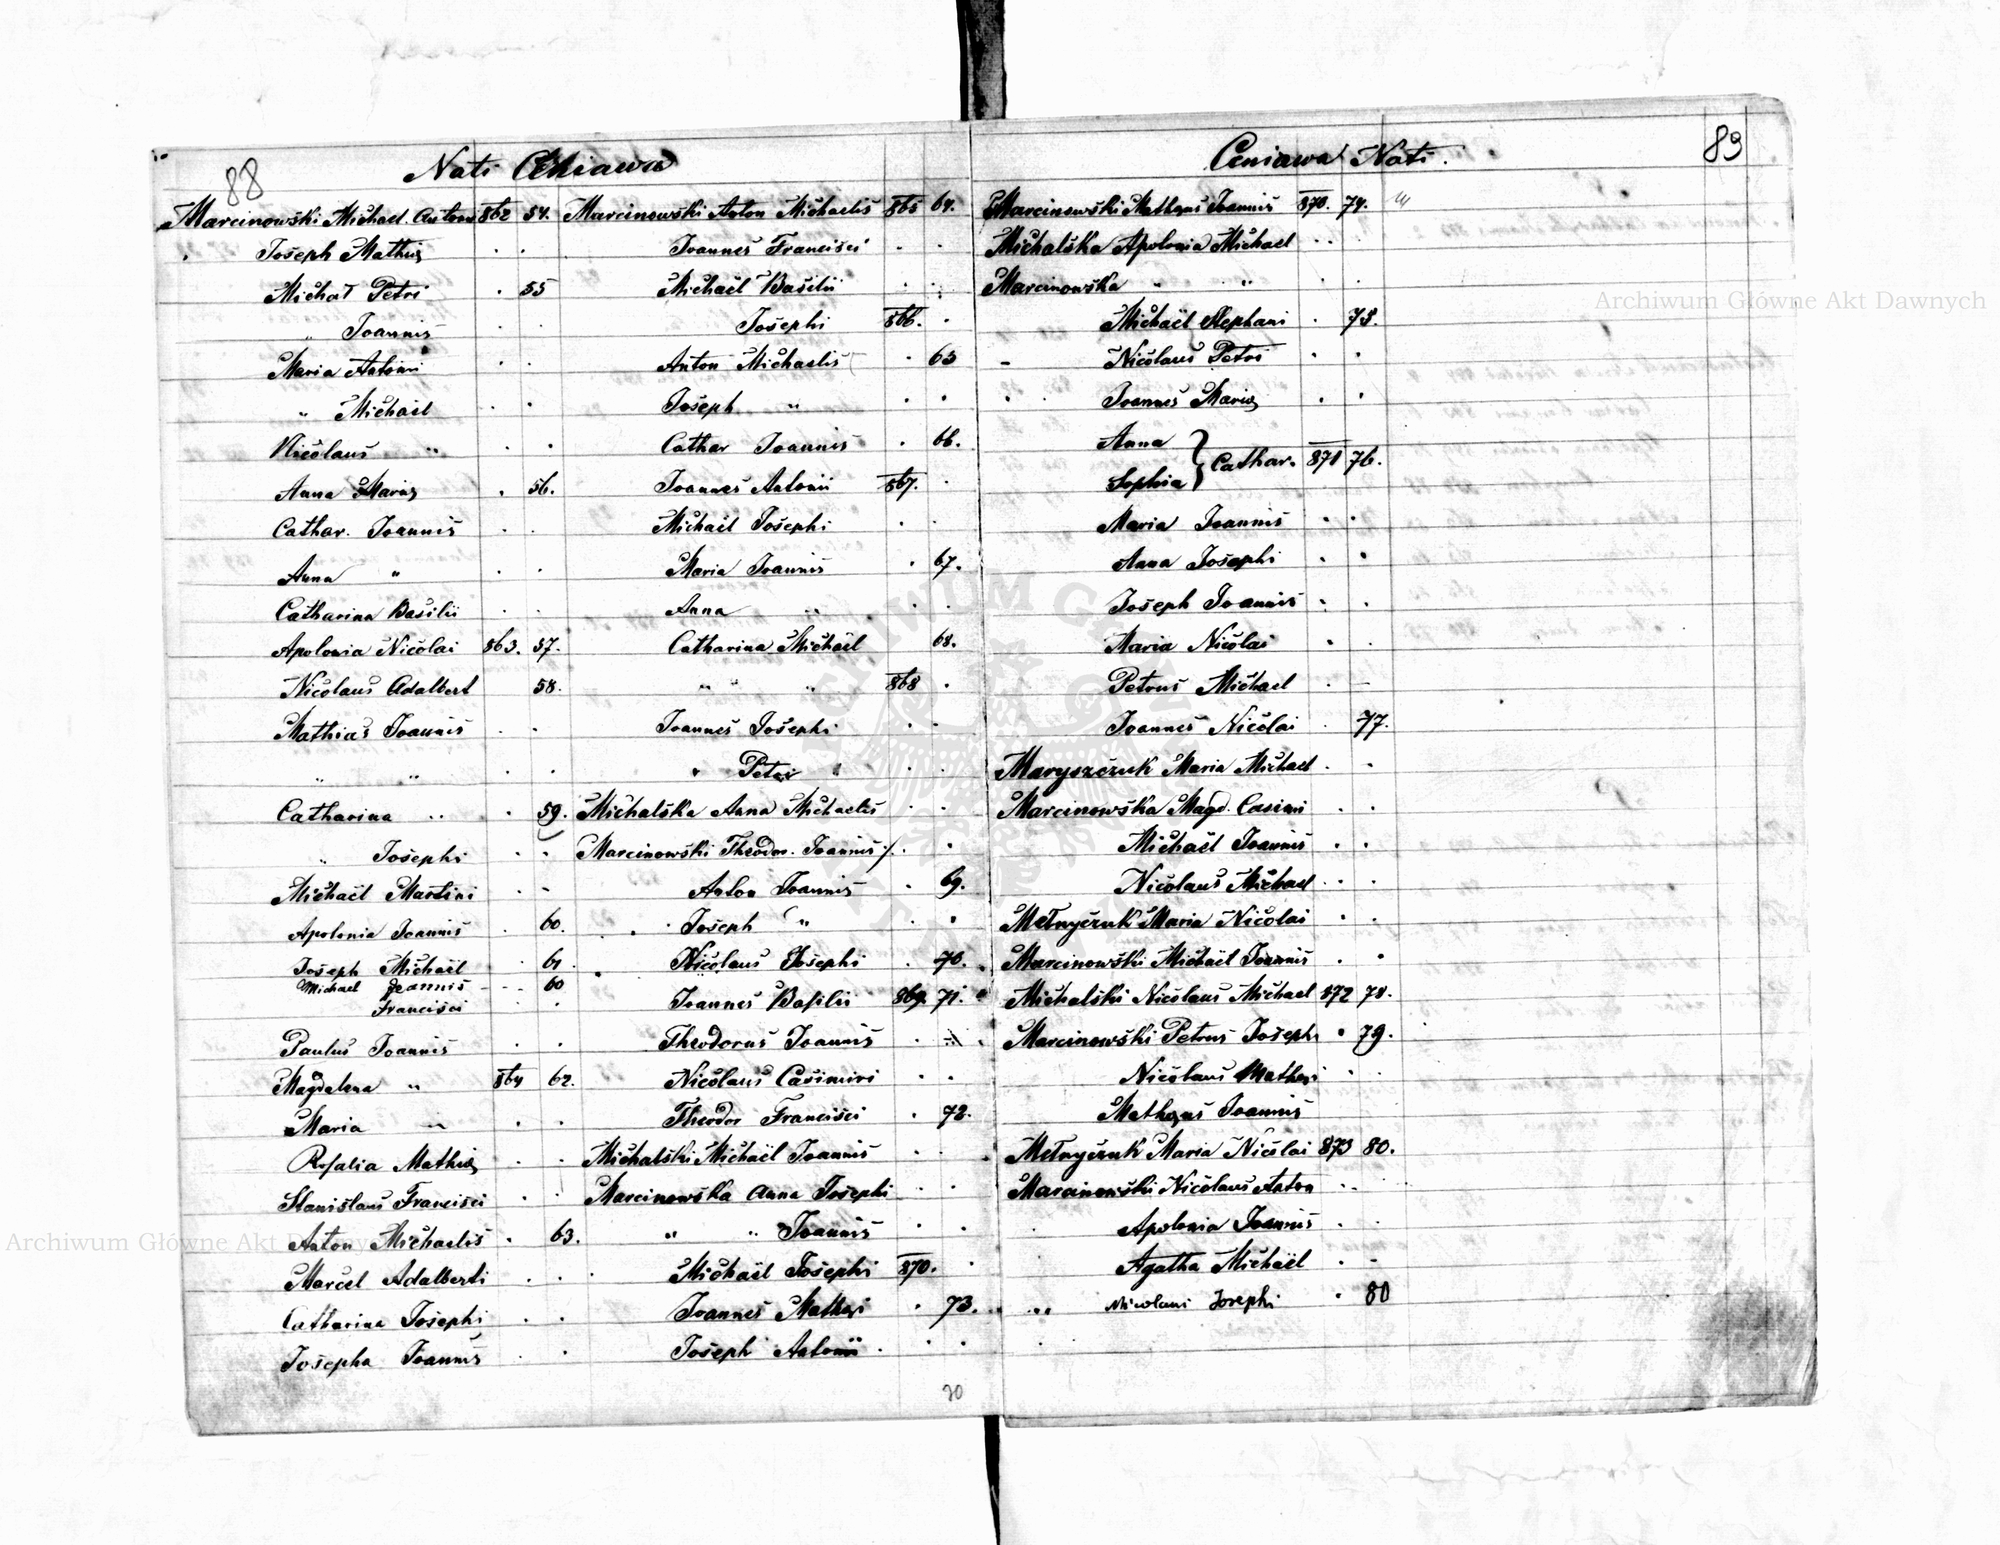 88
Nati Ceniawa
Marcinowski Michael. Anton 862 54.
Joseph Mathei . .
Michał Petri . 55
" Joannis . .
Maria Antonii . .
" Michael . .
Nicolaus " . .
Anna Maria . 56.
Cathar. Joannis . .
Anna " . .
Catharina Basilii . .
Apolonia Nicolai 863. 57.
Nicolaus Adalbert 58.
Mathias Joannis . .
" " . .
Catharina " . 59.
" Josephi . .
Michael Martini . -
Apolonia Joannis . 60.
Joseph Michael . 61.
Michael Joannis - - 60
Francisci . .
Paulus Joannis . .
Magdalena " 864 62.
Maria " . .
Rosalia Mathei . .
Stanislaus Francisci . .
Anton Michaelis . 63.
Marcel Adalberti . .
Catharina Josephi . .
Josepha Joannis . .
Marcinowski Anton Michaelis 865 64.
Joannes Francisci . .
Michael Basilii . .
Josephi 866. .
Anton Michaelis . 65
Joseph " . .
Cathar Joannis . 66.
Joannes Antonii 867. .
Michael Josephi . .
Maria Joannis . 67.
Anna " . .
Catharina Michael 68.
" " " 868 .
Joannes Josephi . .
" Petri " . .
Michalska Anna Michaelis . .
Marcinowski Theodor. Joannis . .
Anton Joannis . 69.
Joseph " . .
Nicolaus Josephi . 70.
Joannes Basilii 869. 71.
Theodorus Joannis . .
Nicolaus Casimiri . .
Theodor Francisci . 72.
Michalski Michael Joannis . .
Marcinowska Anna Josephi . .
" " Joannis . .
Michael Josephi 870. .
Joannes Mathei . 73.
Joseph Antonii . .
70
Ceniawa Nati.
89
Marcinowski Matheus Joannis 870. 74.
Michalska Apolonia Michael . .
Marcinowska " " . .
Michael Stephani . 75.
- Nicolaus Petri . .
Joannes Maria . .
Anna
Sophia } Cathar. 871 76.
Maria Joannis . .
Anna Josephi . .
Joseph Joannis . .
Maria Nicolai . .
Petrus Michael . -
Joannes Nicolai . 77.
Maryszczuk Maria Michael . .
Marcinowska Magd. Casimi . .
Michael Joannis . .
Nicolaus Michael . .
Mełnyczuk Maria Nicolai . .
Marcinowski Michael Joannis . .
Michalski Nicolaus Michael 872 78.
Marcinowski Petrus Joseph . 79.
Nicolaus Mathei . .
Matheus Joannis
Mełnyczuk Maria Nicolai 873 80.
Marcinowski Nicolaus Anton . .
Apolonia Joannis . .
Agatha Michael . -
" Nicolaus Josephi . 80
Archiwum Główne Akt Dawnych
Archiwum Główne Akt Dawnych